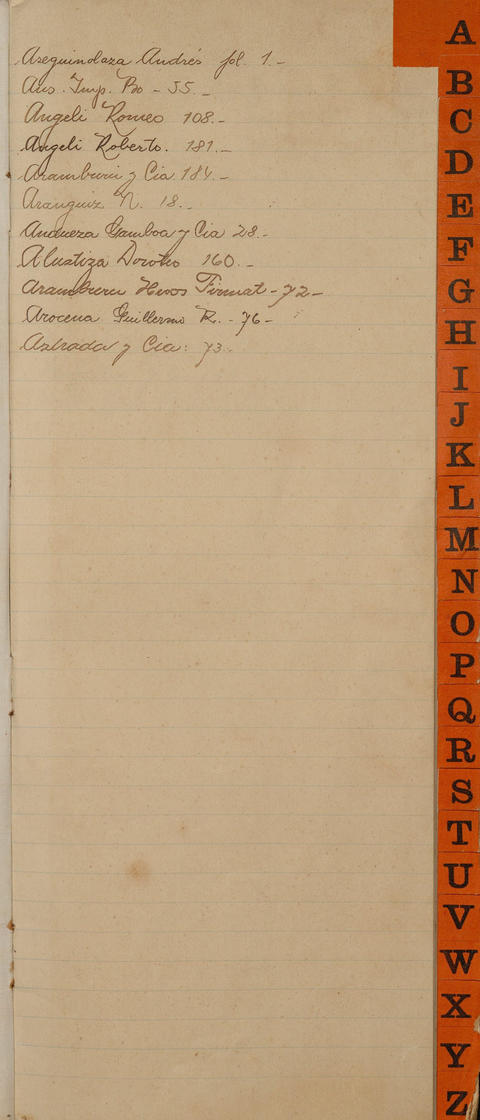 Aseguinolaza Andrés fol. 1.-
Aus. Imp. Bo - 55.-
Angeli Romeo 108.-
Angeli Roberto. 181.-
Aramburu y Cia 184.-
Aranguiz N. 18.-
Andueza Gamboa y Cia 28.-
Alustiza Doroteo 160.-
Aramburu Hnos Firmat - 72 -
Arocena Guillermo R. - 76 -
Astrada y Cia: 73.-
A
B
C
D
E
F
G
H
I
J
K
L
M
N
O
P
Q
R
S
T
U
V
W
X
Y
Z